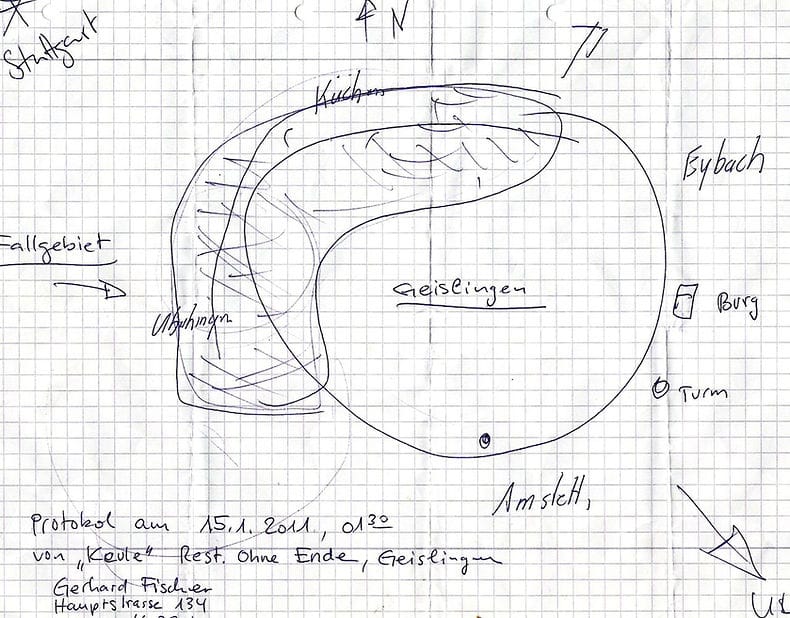 N
Stuttgart
Küchen
Eybach
Fallgebiet
Geislingen
Burg
Turm
Amstett,
Protokol am 15.1.2011, 01³⁰
von „Keule" Rest. Ohne Ende, Geislingen
Gerhard Fischer
Hauptstrasse 134